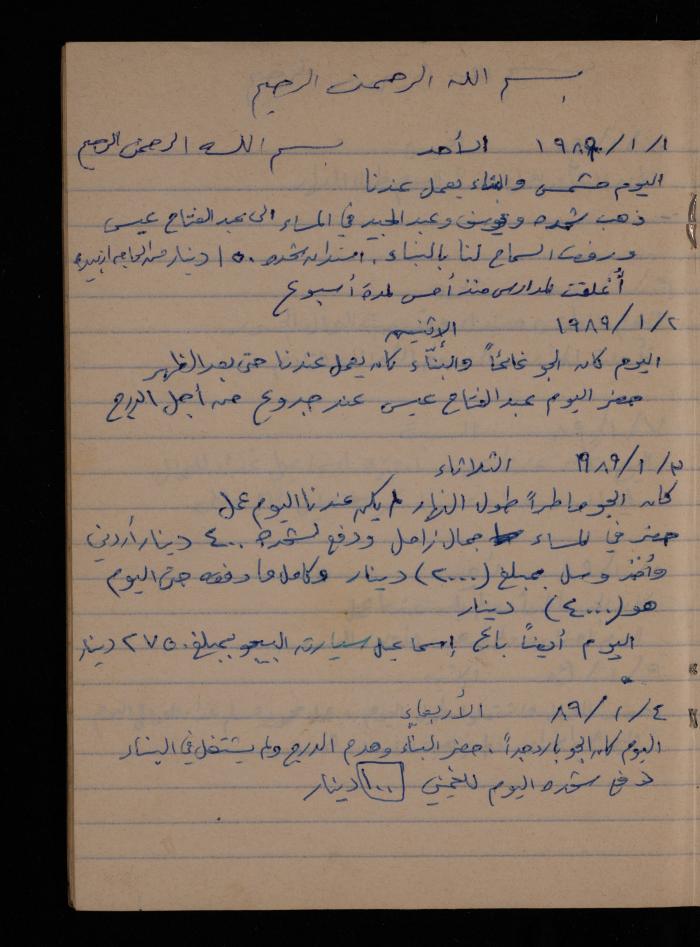 بسم الله الرحمن الرحيم
١/١/١٩٨٩ الأحد بسم الله الرحمن الرحيم
اليوم مشمس والبناء يعمل عندنا
ذهب شحده وعبد المجيد في المساء الى عبد الفتاح عيسى
ورفض السماح لنا بالبناء. شحده ١٥٠ دينار من
أُغلقت المدارس منذ أمس لمدة أسبوع
١٩٨٩/١/٢ الإثنين
اليوم كان الجو غائماً والبنّاء كان يعمل عندنا حتى بعد الظهر
حضر اليوم عبد الفتاح عيسى عند جدوع من أجل الدرج
١٩٨٩/١/٣ الثلاثاء
كان الجو ماطراً طول النهار لم يكن عندنا اليوم عمل
حضر في المساء جمال زامل ودفع لشحده ٤٠٠ دينار أردني
وأخذ وصل بمبلغ (٢٠٠٠) دينار وكامل ما دفعه حتى اليوم
هو (٤٠٠٠) دينار
اليوم أيضاً باع إسماعيل سيارته البيجو بمبلغ ٢٧٥٠ دينار
٨٩/١/٤ الأربعاء
اليوم كان الجو بارد جداً. حضر البنّاء وهدم الدرج ولم يشتغل في البناء
دفع شحده اليوم ١٠٠ دينار